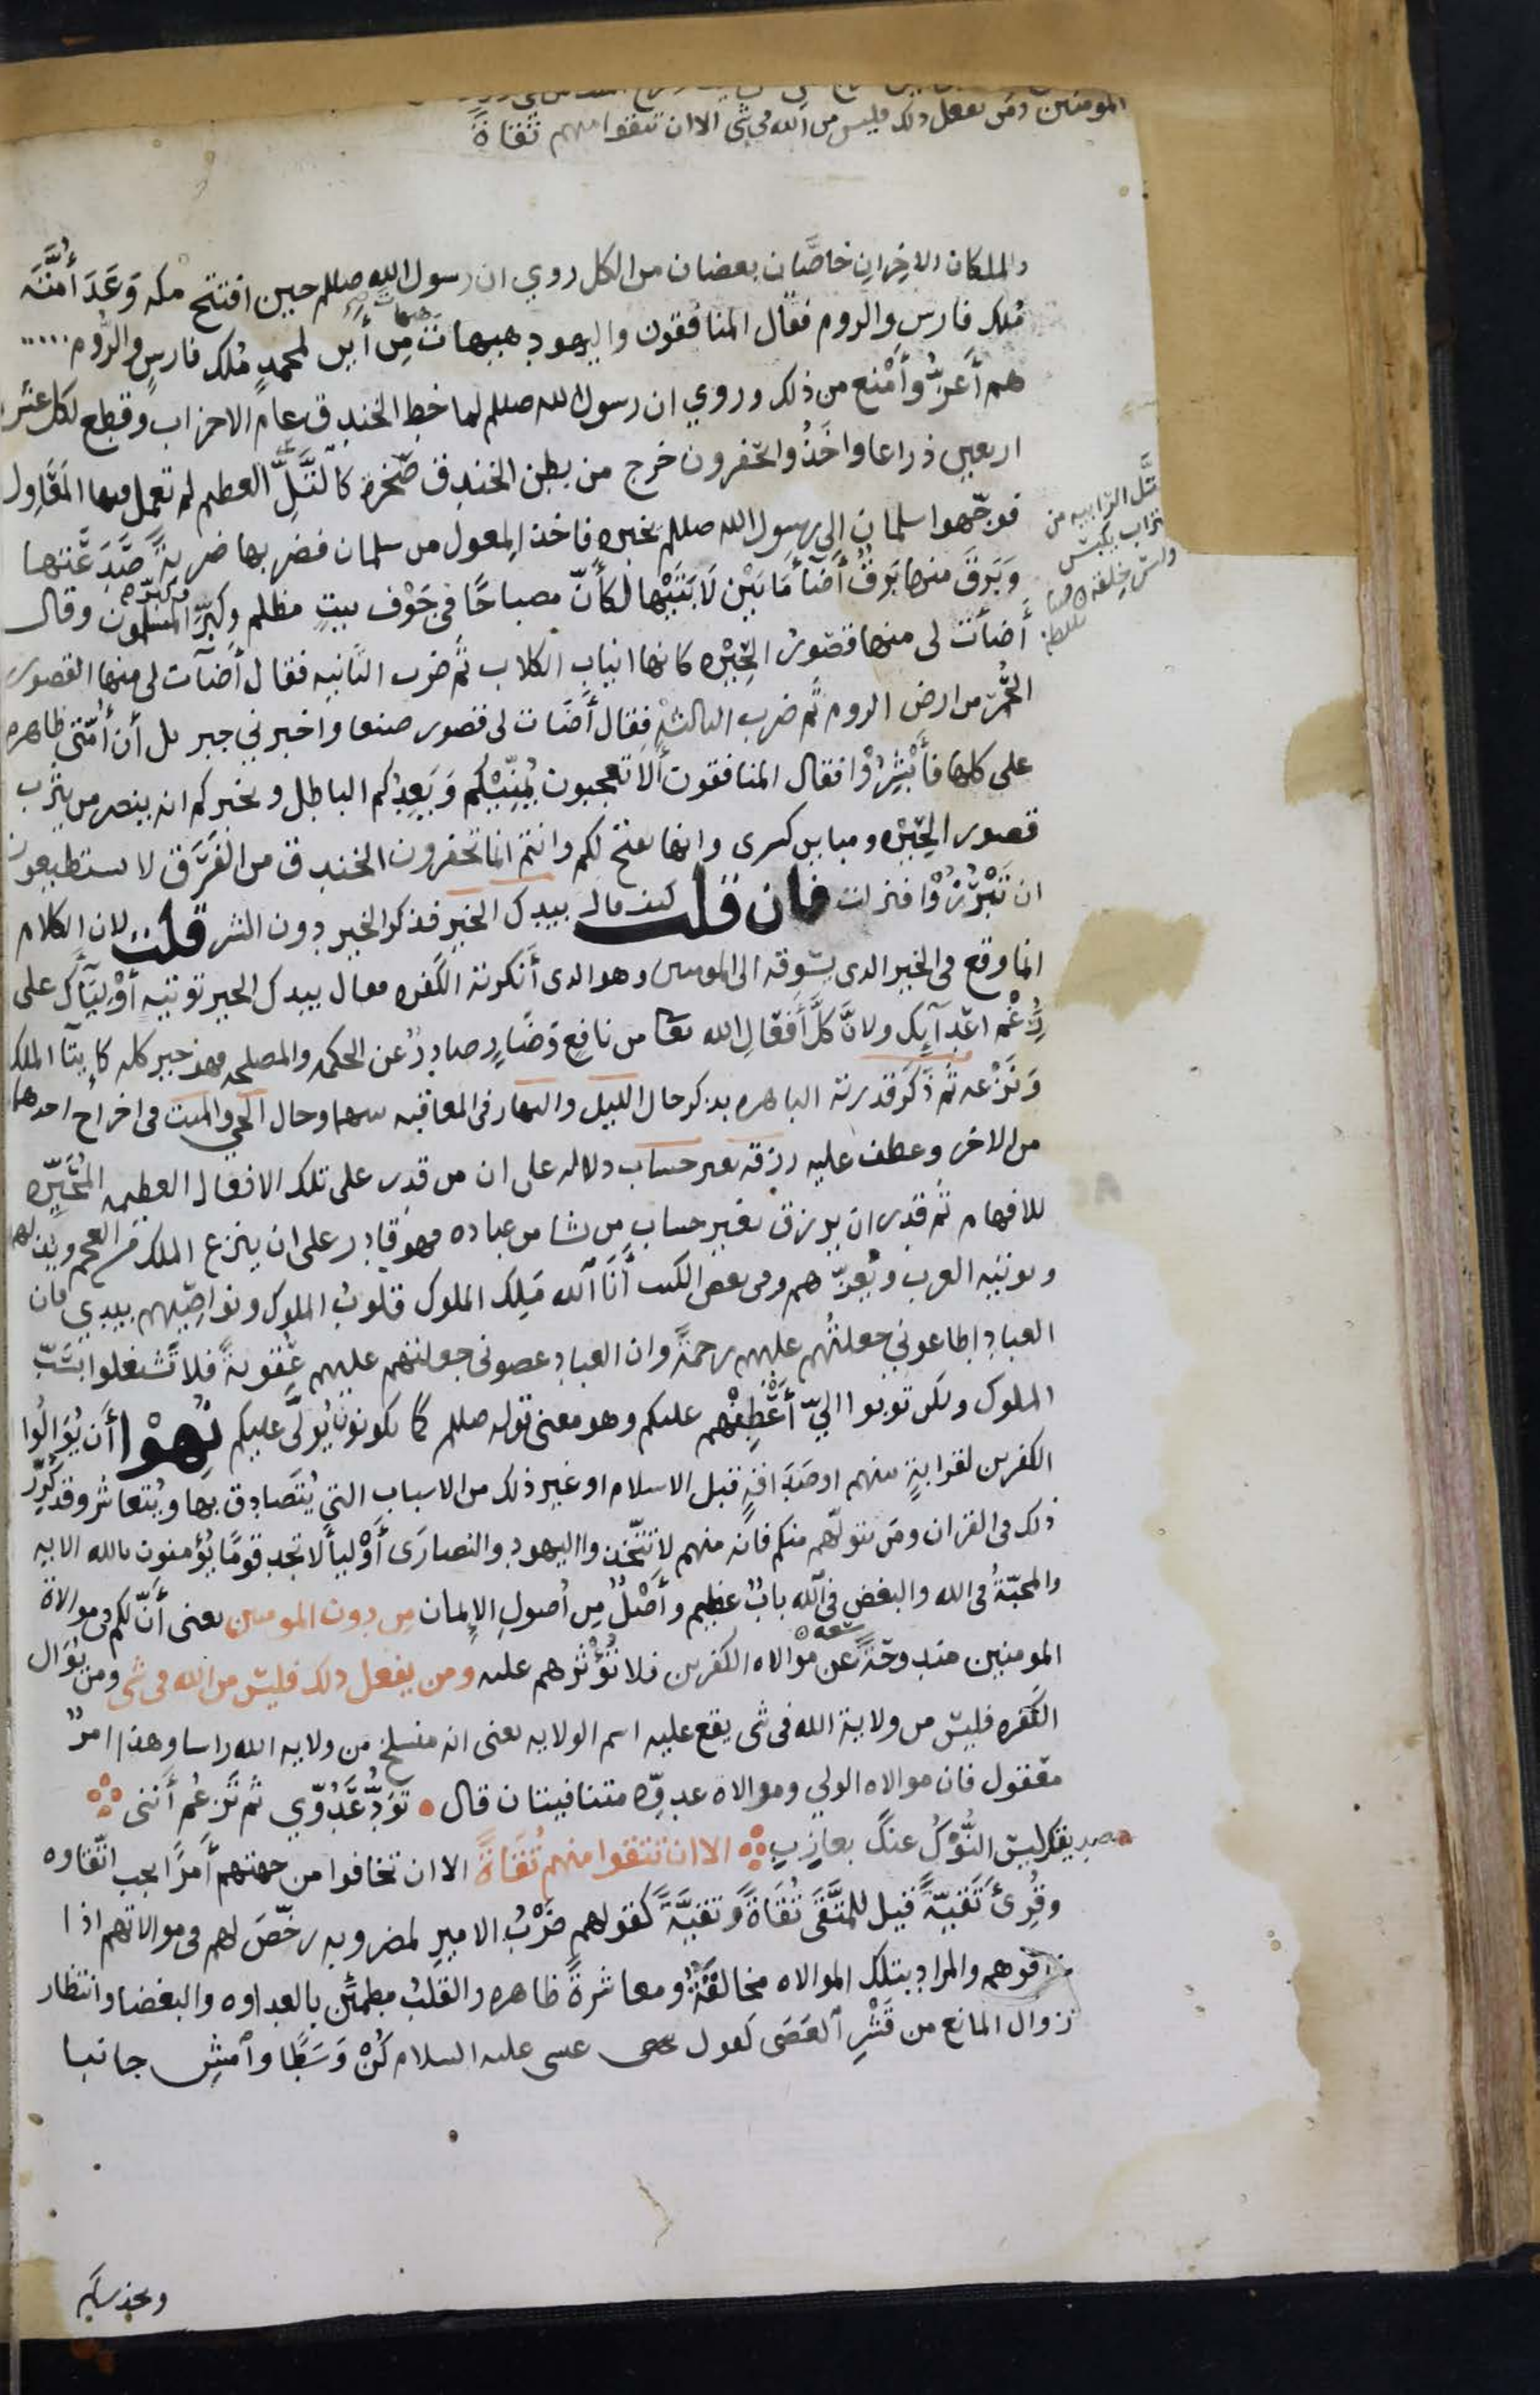 المومنين ومن يفعل ذلك فليس من الله في شى الا ان تتقوا منهم تقاة
والملكان الاخران خاصّان بعضان من الكل روي ان رسول الله صللم حين افتتح مكه وَعَدَ أمّتَه
مُلك فارس والروم فقال المنافقون واليهود هيهات هيهات مِن أين لمحمدٍ مُلك فارسٍ والرُّوم
هم أَعَزُّ وأَمْنع من ذلك وروي ان رسول الله صللم لما خط الخندق عام الاحزاب وقطع لكل عشرة
اربعين ذراعا واخَذُوا يحفرون خرج من بطن الخندق صَخرة كالتَّلِّ العظيم لم تعمل فيها المَعَاوِل
فوجّهوا سلمان الى رسول الله صللم يخبره فاخذ المعول من سلمان فضربها ضربةً صَدَعَتها
وَبَرقَ منها بَرقٌ أَضَآءَ مَا بَيْن لَابَتَيْها لكأَنّ مصباحًا في جَوْف بيتٍ مظلم وكبّر وكبّر المسلمون وقال
أضآت لى منها قصورُ الحِيْره كانها انياب الكلاب ثم ضرب الثانيه فقال أضآت لى منها القصور
الحُمْر من ارض الروم ثم ضرب الثالثه فقال أضَات لى قصور صنعا واخبرني جبريل أن أمّتي ظاهره
على كلها فأَبْشِرُوْا فقال المنافقون ألا تعجبون يُمَنِّيْكم وَيَعِدُكم الباطل ويخبركم انه يبصر من يثرب
قصور الحِيْره ومداين كسرى وانها تفتح لكم وانتم انما تحفرون الخندق من الفَرَق لا تستطيعون
ان تَبْرُزُوْا فنزلت فان قلت كيف قال بيدك الخير فذكر الخير دون الشر قلت لان الكلام
انما وقع فى الخير الذى يسُوقه الى المومنين وهو الذى أنكرته الكَفره فقال بيدك الخير توتيه أوْلِيَآك على
رُغْم اعْدآيِك ولانَّ كلَّ أفعَالِ الله تعا من نافِعٍ وَضَآرٍ صادِرٌ عن الحكمه والمصلحه فهو خير كله كايتآ الملك
وَنَزْعه ثم ذكَرَ قدرته الباهره بذكر حال الليل والنهار فى المعاقبه بينهما وحال الحي والميت فى اخراج احدهما
من الاخر وعطف عليه رزقه بغير حساب دلاله على ان من قدر على تلك الافعال العظيمه المُحَيِّره
للافهام ثم قدر ان يرزق بغير حسابٍ من يشا من عباده فهو قادر على ان ينزع الملك من العجم ويذلهم
ويوتيه العرب ويُعِزّهم وفى بعض الكتب أَنَا الله مَلِك الملوك قلوبُ الملوك ونواصِيْهم بيدي فان
العباد اطاعوني جعلتُهم عليهم رحمةً وان العباد عصونى جعلتهم عليهم عُقوبةً فلا تشتغلوا بسَبّ
الملوك ولكن توبوا اليّ أَعْطِفْهم عليكم وهو معنى قوله صللم كما تكونون يُوَلَّى عليكم نُهوْا أَن يُوَالُوا
الكفرين لقرابةٍ بينهم او صَدَاقةٍ قبل الاسلام او غير ذلك من الاسباب التي يُتَصَادق بها ويُتعاشر وقد كُرِّر
ذلك فى القران ومَن يتولّهم منكم فانه منهم لا تتّخذوا اليهود والنصارَى أَوْليآ لا تجد قومًا يُؤمنون بالله الايه
والمحبّةُ فى الله والبغض في الله بابٌ عظيم وأَصْلٌ مِن أُصولِ الإيمان مِن دون المومنين يعنى أَنّ لكم فى موالاة
المومنين مندوحَةً سعه عن مُوالاه الكفرين فلا تُؤْثرُهم عليه ومن يفعل ذلك فليسَ من الله فى شى ومن يُوَال
الكَفره فليسَ من ولاية الله فى شى يقع عليه اسم الولايه يعنى انه منسلخ من ولايه الله راسا وهذا امرٌ
معقول فان موالاه الولي وموالاة عدوّه متنافيتان قال تَوَدُّ عَدُوّي ثم تَزعُم أَنّنى
صديقك ليسَ النُّوْكُ عنك بعازِبِ الا ان تتقوا منهم تُقَاةً الا ان تخافوا من جهتهم أَمرًا يجب اتّقاوه
وقُرِئَ تَقيَّةً قيل للمتَّقَى تُقَاةً وَتقيَّةً كقولهم ضَرْبُ الاميرِ لمضروبه رخّصَ لهم فى موالاتهم اذا
خافوهم والمراد بتلك الموالاه مخالفَةٌ ومعاشرةٌ ظاهره والقلبُ مطمئِنّ بالعداوه والبغضا وانتظار
زوال المانع من قَشْرِ العَصَى كقول عيسى عليه السلام كُنْ وَسَطًا وامشِ جانبا
تَّلّ الرابيه من
تراب يكبس
وليس خلقه
ويحذركم